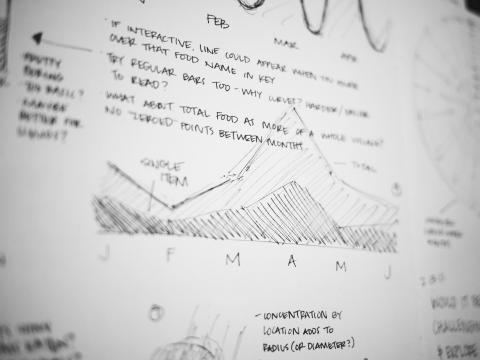 FEB
MAR
APR
· IF INTERACTIVE, LINE COULD APPEAR WHEN YOU HOVER
OVER THAT FOOD NAME IN KEY
· TRY REGULAR BARS TOO - WHY CURVES? HARDER/EASIER
TO READ?
· WHAT ABOUT TOTAL FOOD AS MORE OF A WHOLE VISUAL?
NO "ZEROED" POINTS BETWEEN MONTHS.
PRETTY
BORING
TOO BASIC?
MAYBE
BETTER FOR
SINGLE
ITEM
TOTAL
J F M A M J
- CONCENTRATION BY
LOCATION ADDS TO
RADIUS (OR DIAMETER?)
WOULD
CHALLENGING
& EXPLORE